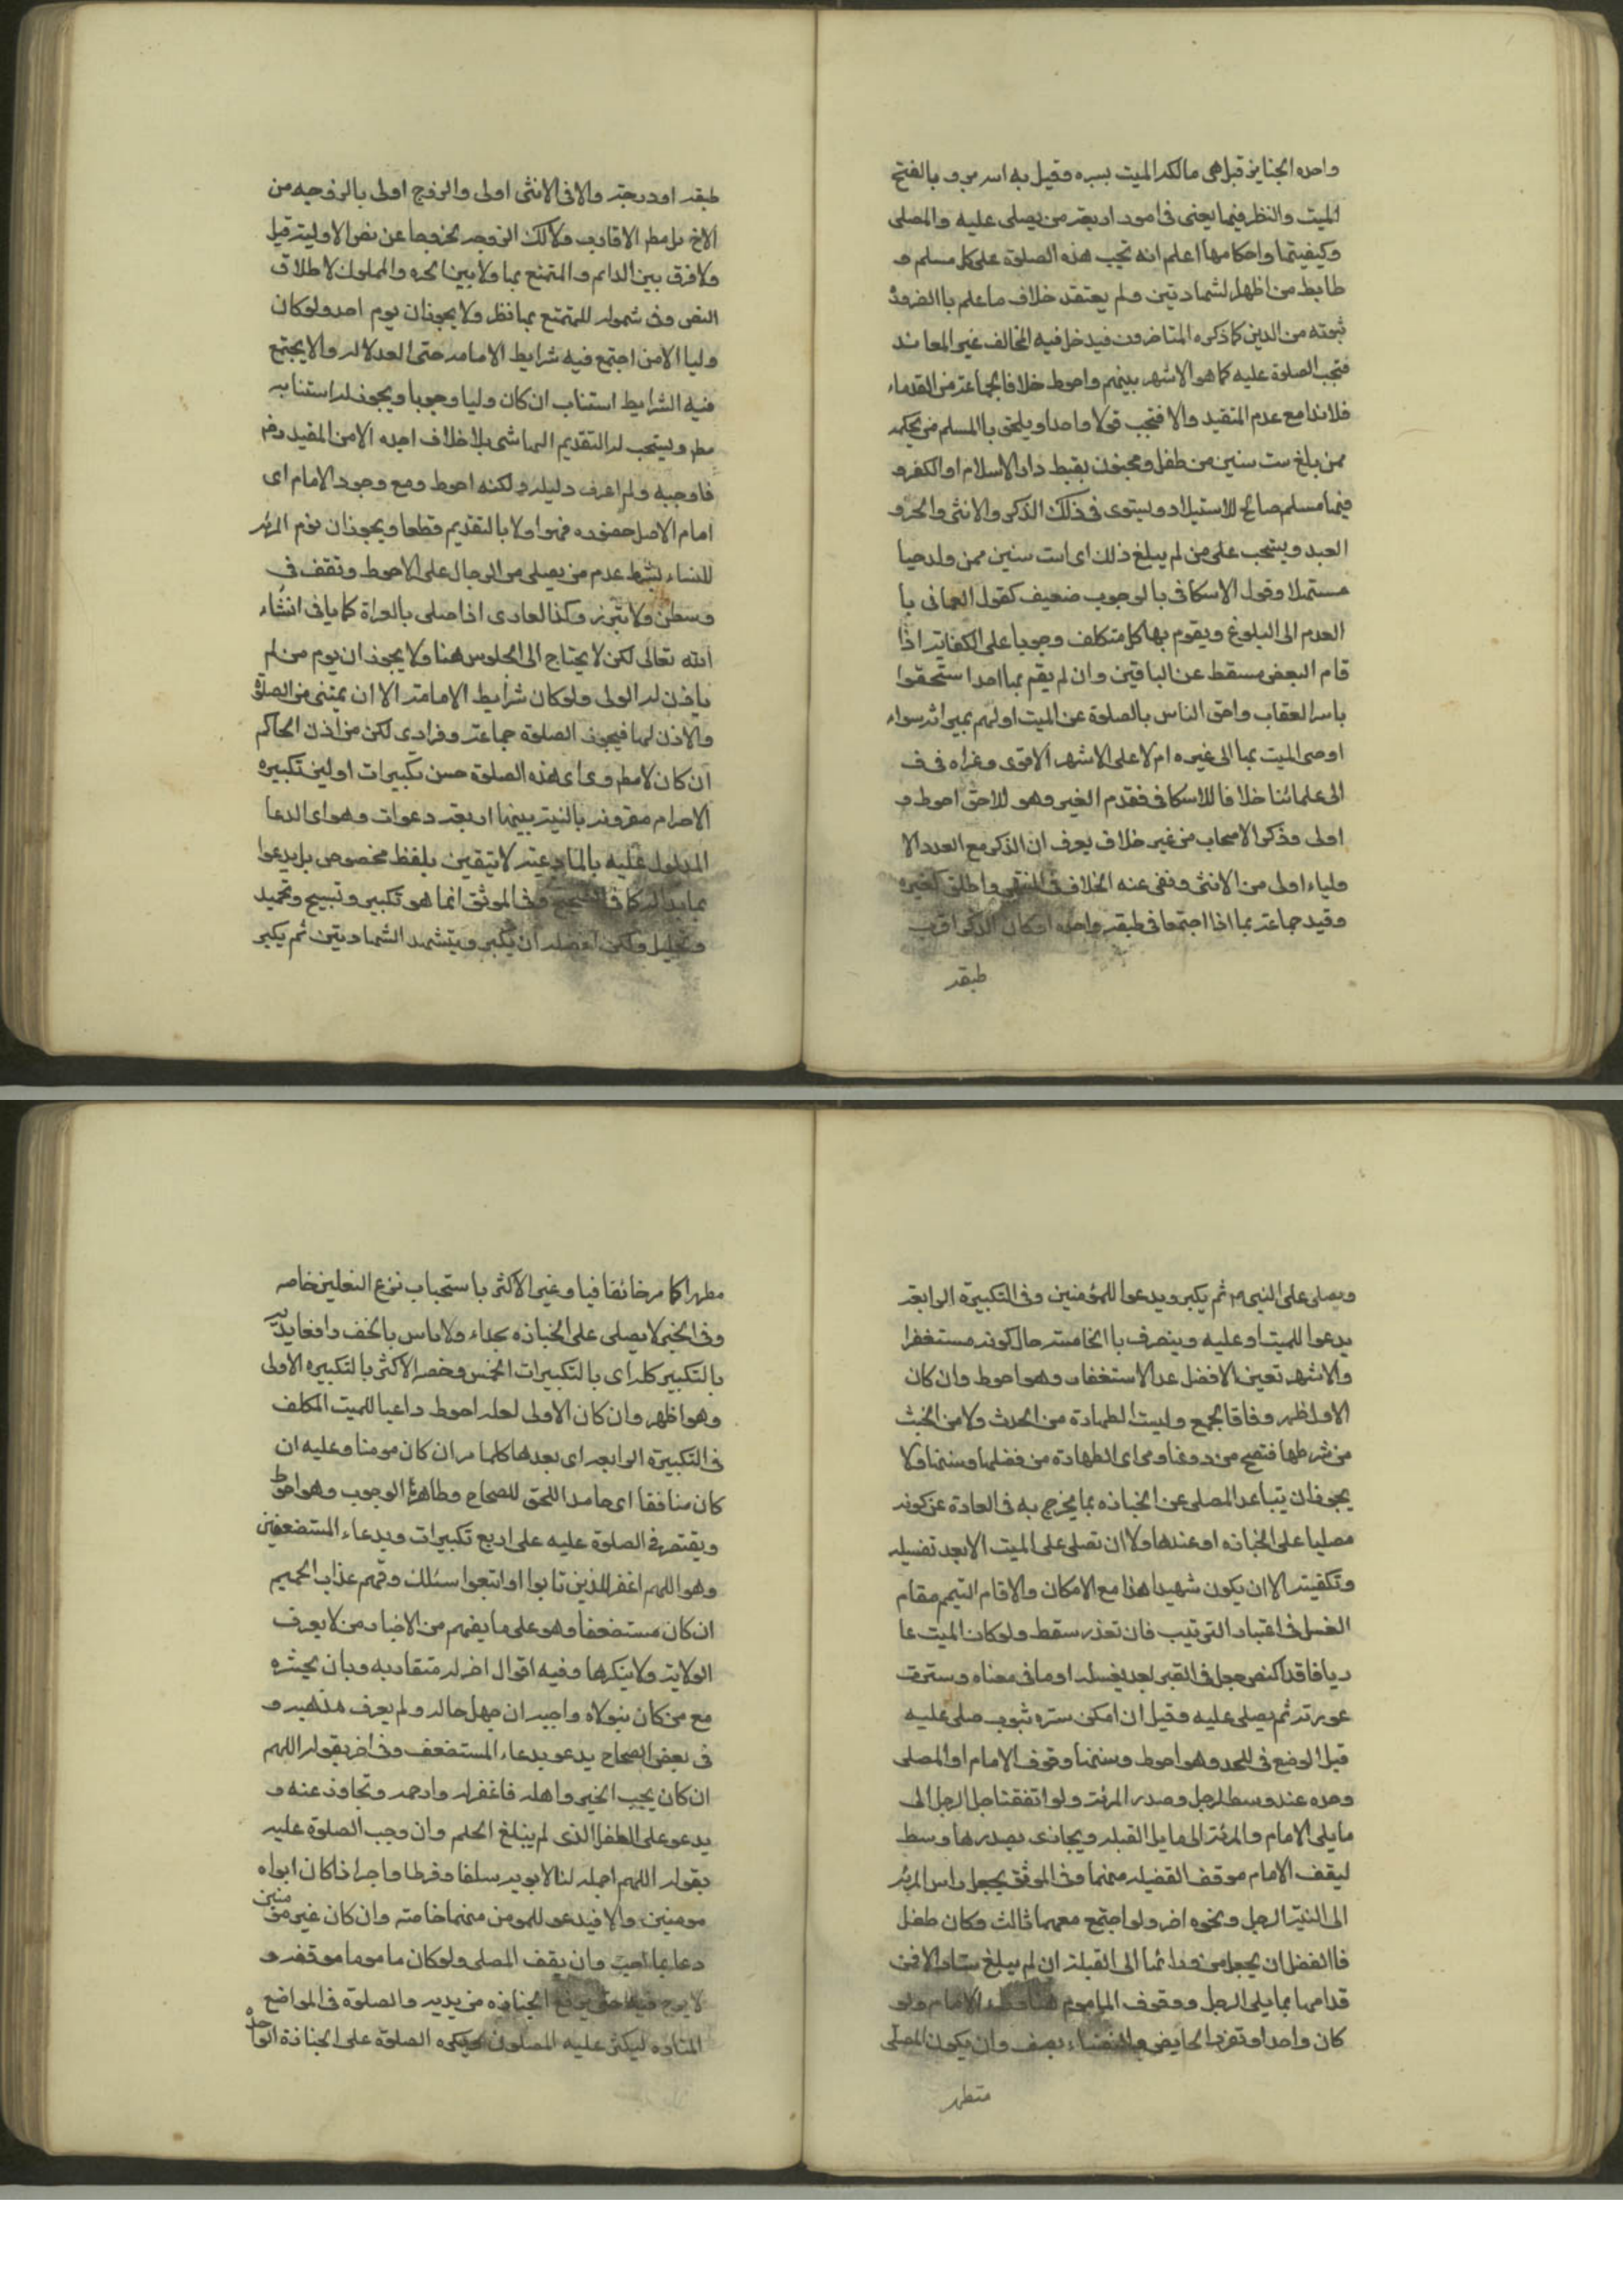 واحده الجنايز قبل هى مالكد الميت بسره وقيل به اسرير و بالفتح
الميت والنظر فيما يعنى فى امور اربعة من يصلى عليه والمصلى
وكيفيتها واحكامها اعلم انه تجب هذه الصلوة على كل مسلم و
طابط من اظهار لشهادتين ولم يعتقد خلاف ما علم باالضرورة
ثبوته من الدين كما ذكره المتاخرون فيدخل فيه المخالف غير المعاند
فتجب الصلوة عليه كما هو الاشهر بينهم واحوط خلافا لجماعة من القدماء
فلا ندا مع عدم التقيد والا فتجب قولا واحدا ويلحق باالمسلم من بحكمه
ممن بلغ ست سنين من طفل ومجنون بقيط دار الاسلام او الكفر و
فيها مسلم صالح للاستيلاد ويستوى فى ذلك الذكر والانثى والحر و
العبد ويستحب على من لم يبلغ ذلك اى ست سنين ممن ولد حيا
مستهلا وقول الاسكافى بالوجوب ضعيف كقول العمانى با
العدم الى البلوغ ويقوم بها كل متكلف وجوبا على الكفايه اذا
قام البعض مسقط عن الباقين وان لم يقم بها احدا ستحقوا
باسر العقاب واحق الناس بالصلوة عن الميت اولهم بميراثه سواء
اوصى الميت بها الى غيره ام لا على الاشهر الاقوى وعزاه فى ف
الى علمائنا خلافا للاسكافى فقدم الغير وهو للاحق احوط و
اولى وذكر الاصحاب من غير خلاف يعرف ان الذكر مع العدد الا
ولياء اولى من الانثى ونفى عنه الخلاف فى المنتهى واطلق كغيره
وقيد جماعة بما اذا اجتمعا فى طبقه واحده او كان الذكر اقرب
طبقه
طبقه او درجة والا فى الانثى اولى والزوج اولى بالزوجه من
الاخ بل مطر الاقارب ولا لك الزوجه لخروجها عن نص الاوليه قيل
ولا فرق بين الدائم والمتمتع بها ولا بين الحره والمملوك لاطلاق
النص وفى شموله للمتمتع بها نظر ولا يجوز ان يوم احد ولو كان
وليا الا من اجتمع فيه شرايط الامامه حتى العدلاله والا يجتمع
فيه الشرايط استناب ان كان وليا وجوبا ويجوز له استنابه
مطر ويستحب له التقديم الهاشمى بلا خلاف اجده الا من المفيد رحم
فاوجبه ولم اعرف دليله ولكنه احوط ومع وجود الامام اى
امام الاصل حضوره فهو اولا بالتقديم قطعا ويجوز ان يوم المرئه
للنساء بشرط عدم من يصلى من الرجال على الاحوط وتقف فى
وسطهن ولا تبرز وكذا لعارى اذا صلى بالعراة كما ياتى انشاء
الله تعالى لكن لا يحتاج الى الجلوس هنا ولا يجوز ان يوم من لم
ياذن له الولى ولو كان شرايط الامامة الا ان يمتنى من الصلوة
والاذن لها فيجوز الصلوة جماعة وفرادى لكن من اذن الحاكم
ان كان لا مطر وى اى هذه الصلوة خمس تكبيرات اولهن تكبيره
الاحرام مقرونه بالنية بينها اربعة دعوات وهو اى الدعا
المدلول عليه بالمادعيه لا يتقين بلفظ مخصوص بل يدعوا
بما بداله كما فى الصحيح وفى الموثق انما هو تكبير وتسبيح وتحميد
وتهليل ولكن افضله ان يكبر ويتشهد الشهادتين ثم يكبر
ويصلى على النبى ص ثم يكبر ويدعوا للمؤمنين وفى التكبيرة الرابعة
يدعوا للميت او عليه وينصرف باالخامسه حال كونه مستغفرا
والاشهر تعين الافضل عد الاستغفار وهو احوط وان كان
الاول اظهر وفاقا لجمع وليست الطهارة من الحدث ولا من الخبث
من شرطها فتصح من دونها وهى اى الطهارة من فضلها وسنتها ولا
يجوز ان يتباعد المصلى عن الجنازه بما يخرج به فى العادة عن كونه
مصليا على الجنازه او عندها ولا ان تصلى على الميت الا بعد تغسيله
وتكفينه الا ان يكون شهيدا هذا مع الامكان والا قام التيمم مقام
الغسل فى اعتبار الترتيب فان تعذر سقط ولو كان الميت عا
ريا فاقد الكفن جعل فى القبر بعد يغسله او ما فى معناه وسترت
عورته ثم يصلى عليه وقيل ان امكن ستره بثوب صلى عليه
قبل الوضع فى اللحد وهو احوط وسنتها وقوف الامام او المصلى
وحده عند وسط لرجل وصدر المرئه ولو اتفقتا جعل الرجل الى
ما يلى الامام والمرئه الى ما يلى القبله ويحاذى بصدرها وسط
ليقف الامام موقف الفضيله منهما وفى الموثق يجعل راس المرئه
الى النية الرجل ونحوه اخر ولو اجتمع معهما ثالث وكان طفل
فاالفضل ان يجعل من ورائها الى القبلة ان لم يبلغ ستا والافى
قدامها بما يلى الرجل ووقوف الماموم هنا وراء الامام ولو
كان واحدا وتفرد الحايض والنفساء بصف وان يكون المصلى
متطهر
مطهرا كما مر خائفا فيا وغير الاكثر باستحباب نزع النعلين خاصه
وفى الخبر لا يصلى على الجنازه بحذاء ولا باس بالخف رافعا يديه
بالتكبير كله اى بالتكبيرات الخمس وخصه الاكثر بالتكبيره الاولى
وهو اظهر وان كان الاولى لعله احوط داعيا للميت المكلف
فى التكبيرة الرابعه اى بعدها كلما مر ان كان مومنا وعليه ان
كان منافقا اى جامدا للحق للصحاح وظاهرها الوجوب وهو احوط
ويقتصر فى الصلوة عليه على اربع تكبيرات وبدعاء المستضعفين
وهو اللهم اغفر للذين تابوا واتبعوا سبيلك وقهم عذاب الجحيم
ان كان مستضعفا وهو على ما يفهم من الاخبار من لا يعرف
الولاية ولا ينكرها وفيه اقوال اخر له متقاربه وبان يحشره
مع من كان يتولاه واجبه ان جهل حاله ولم يعرف مذهبه و
فى بعض الصحاح يدعو بدعاء المستضعف وفى اخر بقوله اللهم
ان كان يحب الخير واهله فاغفر له وارحمه وتجاوز عنه و
يدعو على الطفل الذى لم يبلغ الحلم وان وجب الصلوة عليه
بقوله اللهم اجعله لنا لابويه سلفا وفرطا واجرا اذا كان ابواه
مومنين والا فيدعو للمومن منهما خاصه وان كان غير مومنين
دعا بما احب وان يقف المصلى ولو كان ماموما موقفه و
لا يبرح فيه حتى يرفع الجنازه من يديه والصلوة فى المواضع
المتاده ليكثر عليه المصلون ويكره الصلوة على الجنازة الواحده